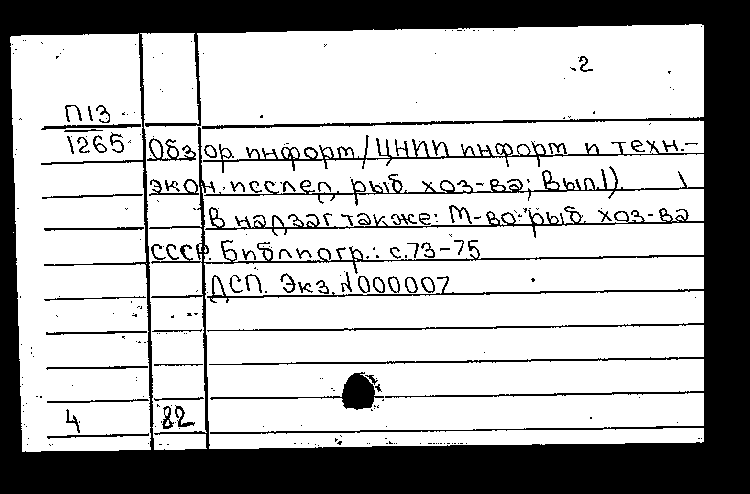 2
П13
1265 Обзор. информ./ЦНИИ информ и техн.-
экон. исслед. рыб. хоз-ва; Вып.1). 1
В надзаг также: М-во рыб. хоз-ва
СССР. Библиогр.: с.73-75
ДСП. Экз. N000007
4 82